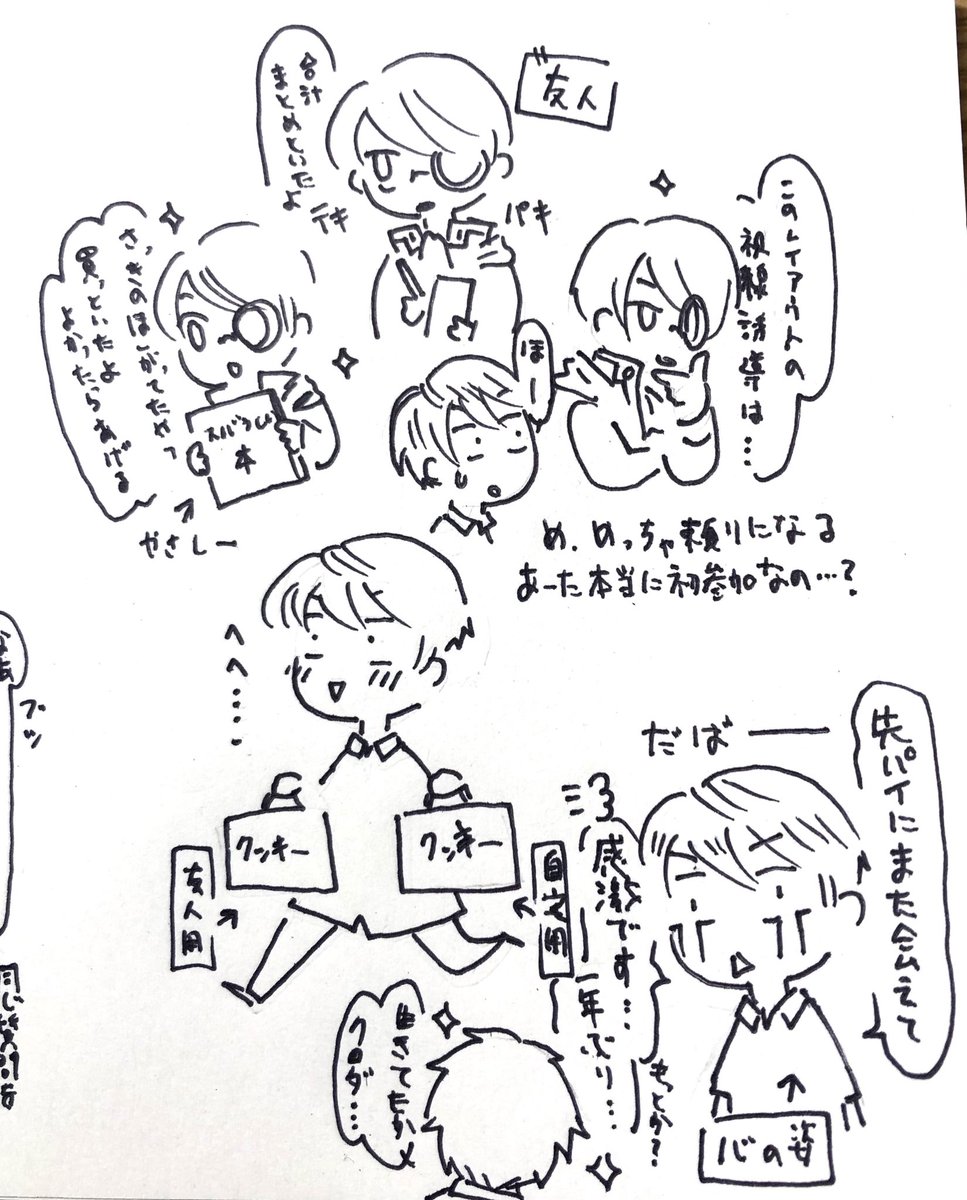 友人
合計
まとめといたよ
テキ
パキ
このレイアウトの
視線誘導は…
さっきのほしがってたやつ
買っといたよ
よかったらあげる
本
やさしー
ほー
め、めっちゃ頼りになる
あーた本当に初参加なの…?
へへ……
クッキー
クッキー
友人用
自宅用
だばー
先パイにまた会えて
感激です…
一年ぶり…
もっとか?
心の姿
生きてたかメ
クロダ…
ブツ